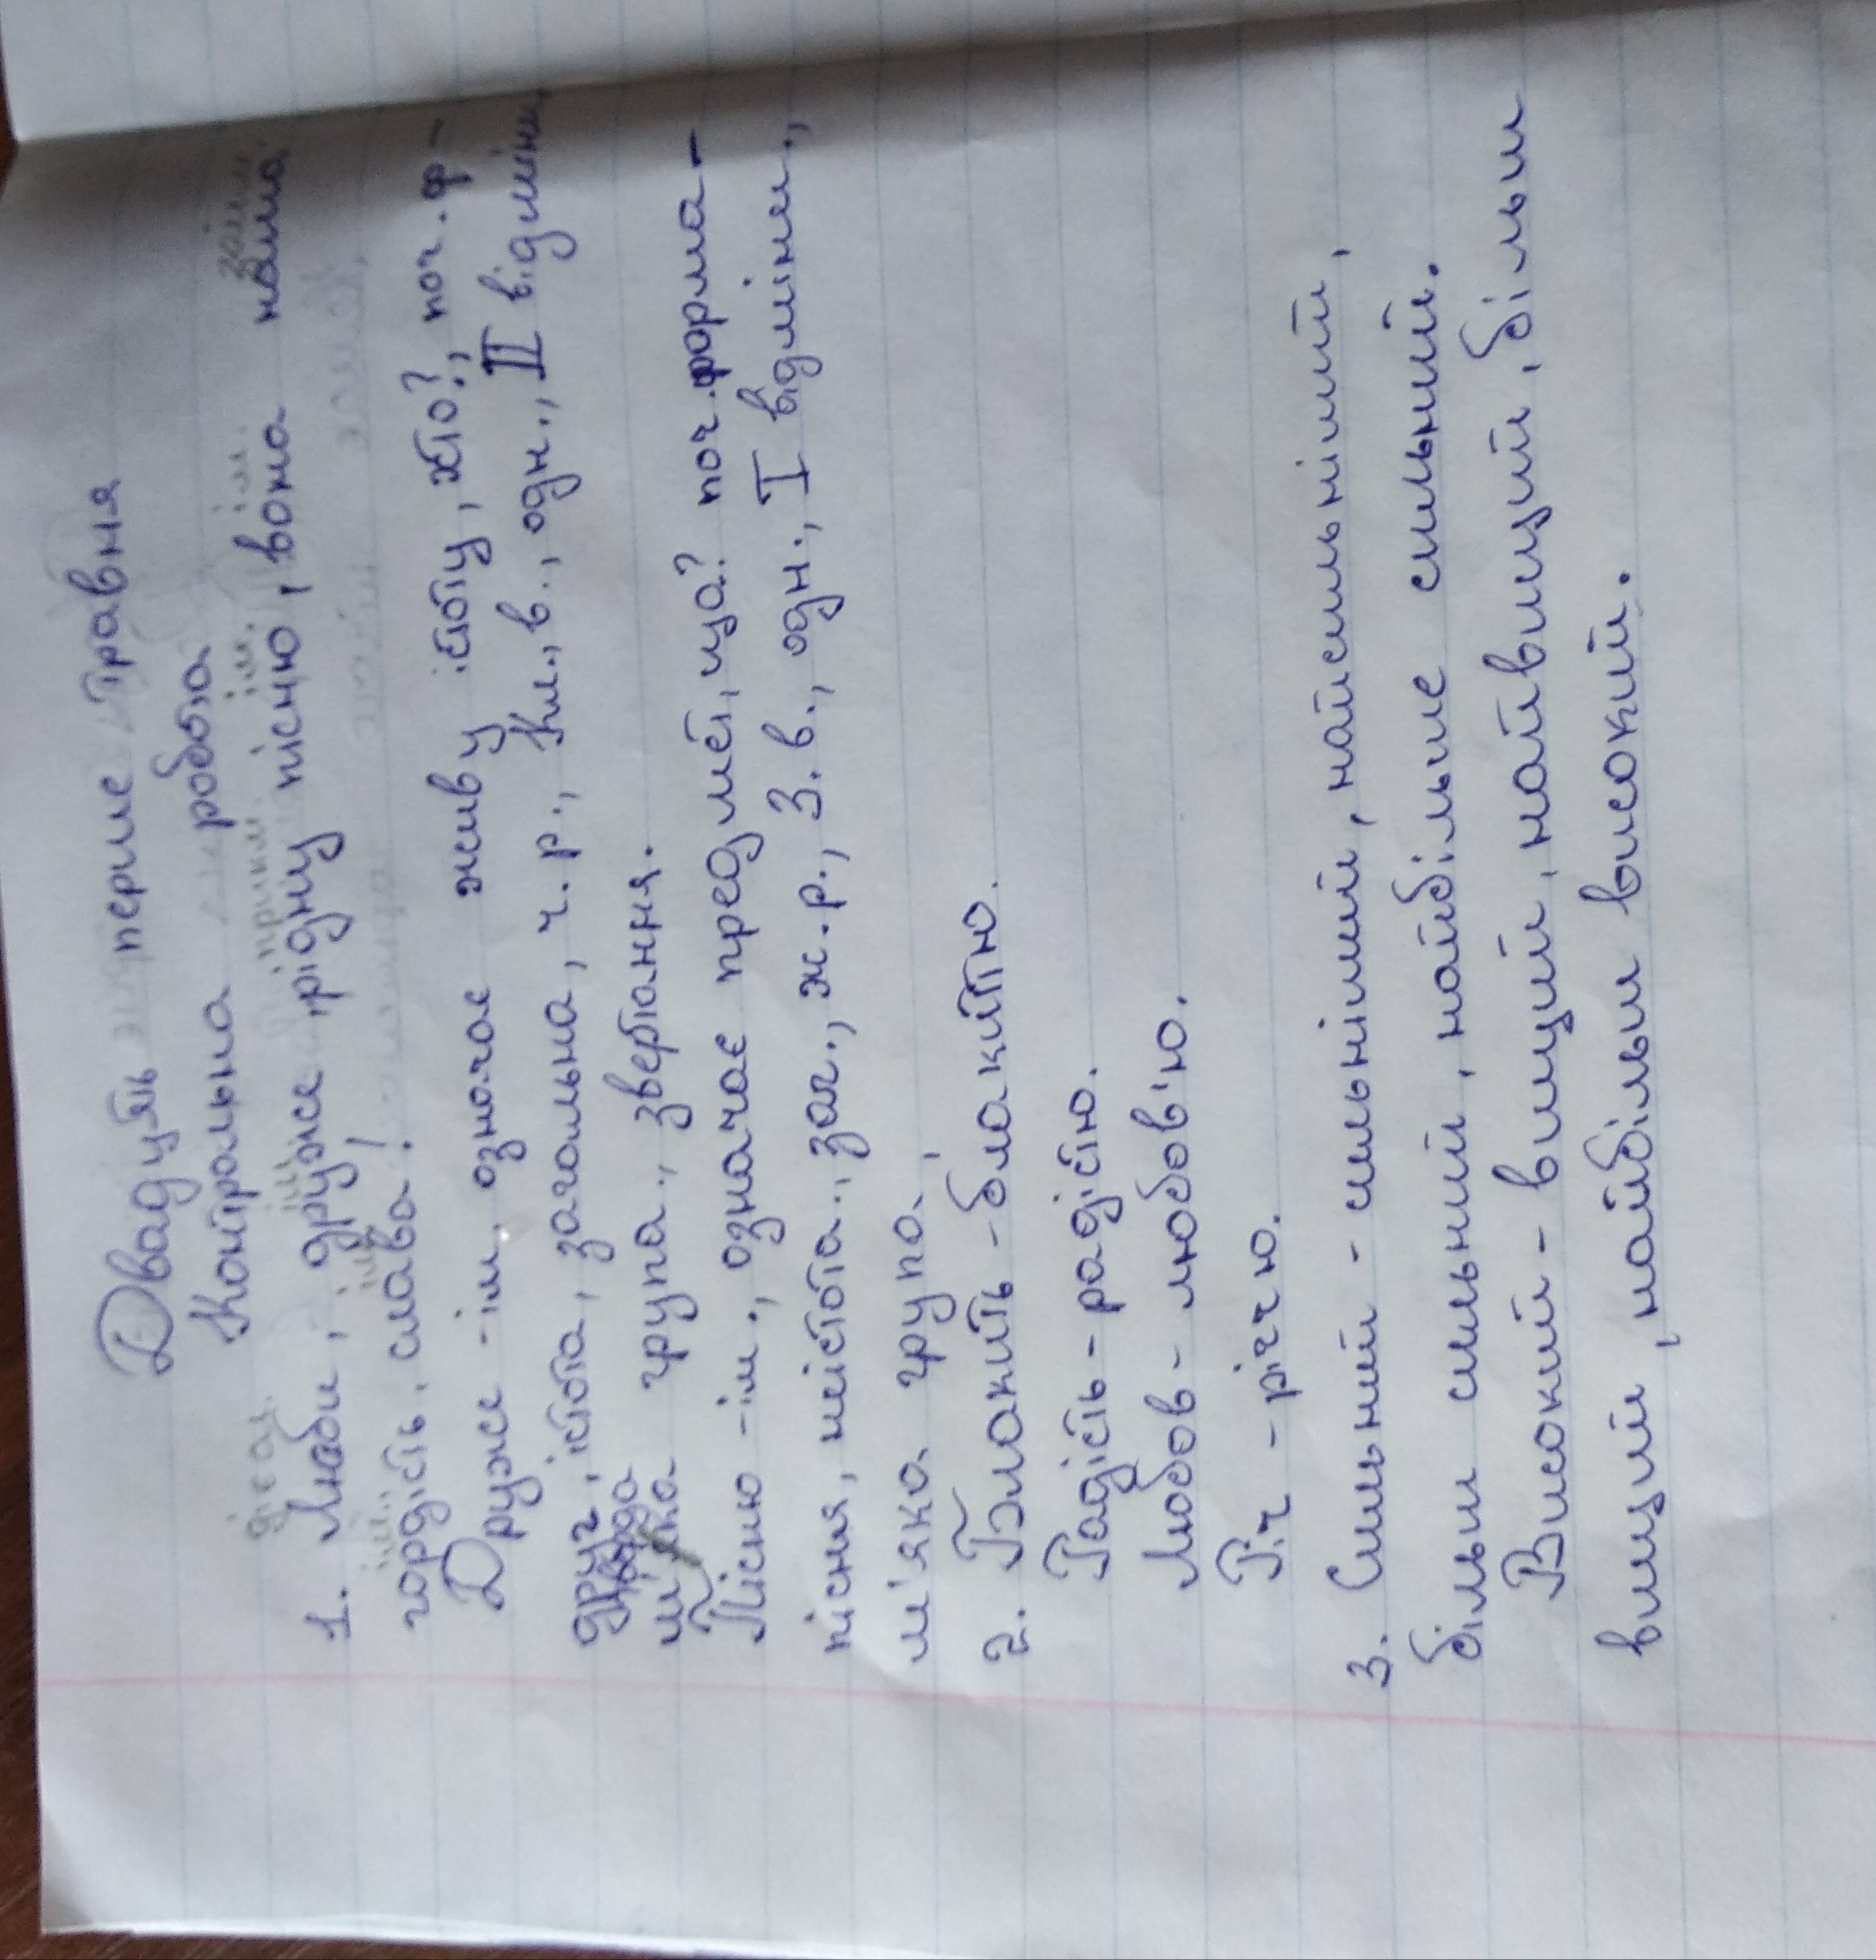 Двадцять перше травня
Контрольна робота
дієсл. ім. прикм. ім. ім. займ.
1. Люби, друже, рідну пісню, вона наша
ім. ім.
гордість, слава!
Друже - ім. означає живу істоту, хто?, поч. ф -
друг, істота, загальна, ч. р., Кл. в., одн., II відміни,
тверда
м'яка група, звертання.
Пісню - ім., означає предмет, що? поч. форма -
пісня, неістота., заг., ж. р., З. в., одн., I відміни.,
м'яка група.
2. Блакить - блакиттю.
Радість - радістю.
Любов - любов'ю.
Річ - річчю.
3. Сильний - сильніший, найсильніший,
більш сильний, найбільше сильний.
Високий - вищий, найвищий, більш
вищий, найбільш високий.